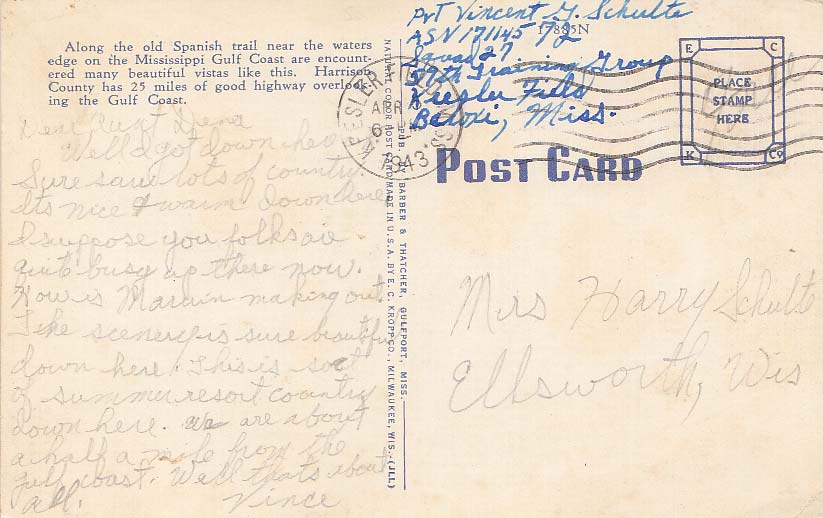 Along the old Spanish trail near the waters
edge on the Mississippi Gulf Coast are encount-
ered many beautiful vistas like this. Harrison
County has 25 miles of good highway overlook-
ing the Gulf Coast.
Dear Aunt Lena
Well I got down here
Sure saw lots of country.
Its nice & warm down here
I suppose you folks are
quit busy up there now.
How is Marvin making out.
The scenery is sure beautiful
down here. This is sort
of summer resort country
down here. We are about
a half a mile from the
gulf coast. Well thats about
all. Vince
NATURAL COLOR POST CARD MADE IN U.S.A. BY E. C. KROPP CO., MILWAUKEE, WIS.-(JLL)
PUB. BY BARBER & THATCHER, GULFPORT, MISS.
Pvt Vincent G. Schulte
17885N
ASN 17114572
Squad 27
59th Training Group
Keesler Field
Beloxi, Miss.
KEESLER FIELD
APR
6
1943
POST CARD
E C
PLACE
STAMP
HERE
K Co
Mrs Harry Schulte
Ellsworth, Wis